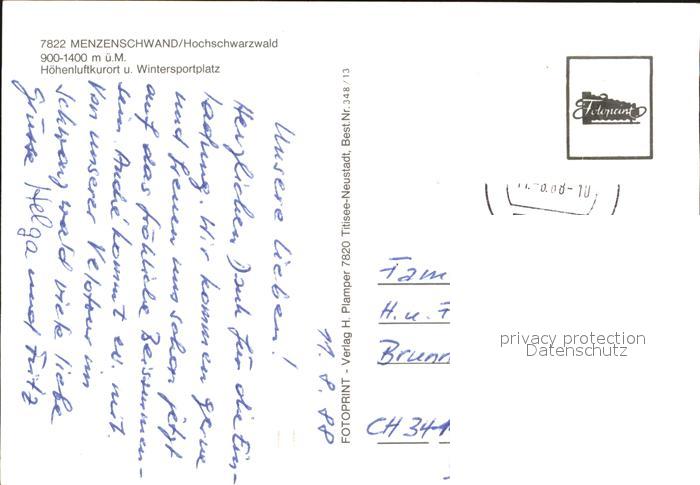 7822 MENZENSCHWAND/Hochschwarzwald
900-1400 m ü.M.
Höhenluftkurort u. Wintersportplatz
11.8.88
Unsere lieben!
Herzlichen Dank für die Ein-
ladung. Wir kommen gerne
und freuen uns schon jetzt
auf das fröhliche Beisammen-
sein. André kommt ev. mit.
Von unserer Velotour im
Schwarzwald viele liebe
Grüsse Helga und Fritz
FOTOPRINT - Verlag H. Plamper 7820 Titisee-Neustadt, Best.Nr. 348/13
Fotoprint
Fam
H. u. F
Brunn
CH 34
privacy protection
Datenschutz